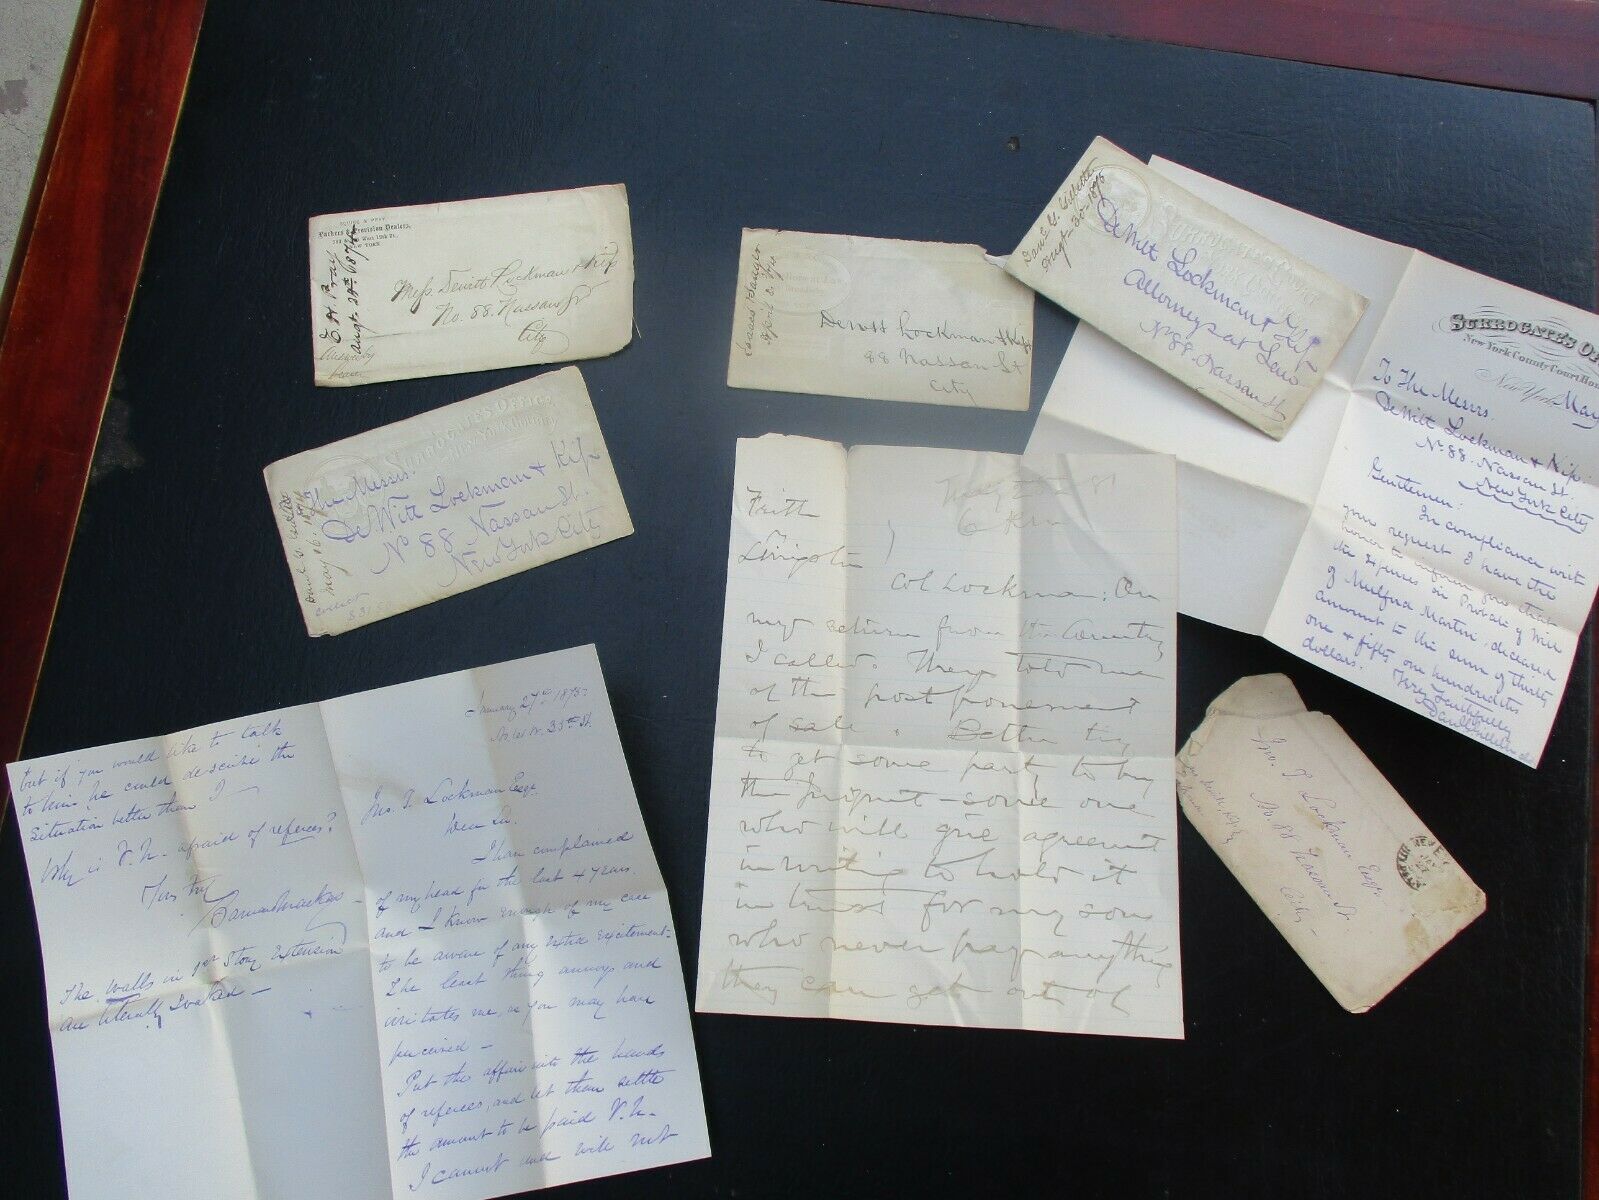 Packers & Provision Dealers,
NEW YORK
E. H. Pray
Augt. 28th 1876
Mess Dewitt Lockman & Kip
No. 88. Nassau St
City
Isaac
April
Dewitt Lockman & Kip
88 Nassau St
City
SURROGATE'S OFFICE
Augt. 30-1876
DeWitt Lockman & Kip
Attorneys at Law
No 88. Nassau St.
SURROGATE'S OFFICE
May 16.
The Messrs.
DeWitt Lockman & Kip
No 88 Nassau St.
New York City
SURROGATE'S OF
New York County Court Hou
New York, May
To The Messrs.
DeWitt Lockman & Kip.
No 88. Nassau St.
New York City
Gentlemen:
In compliance with
your request I have the
honor to inform you that
the expenses on Probate of Will
of Mulford Martin, deceased
amount to the sum of thirty
one & fifty one hundredths
dollars.
Very Truthfully
Frith
Livingston
Col Lockman: On
my return from the Country
I called. They told me
of the postponement
of sale. Better try
to get some party to buy
the
some one
who will give agreement
in writing to hold it
in trust for my son
who never pay anything
they can get out of
Jno. T. Lockman Esqr
No. 88 Nassau St
City
but if you would like to talk
to him he could describe the
situation better than I —
Why is V.N. afraid of referees?
Yours truly
The walls in 1st Story extension
are literally soaked —
January 27th 1875
W. 33rd St.
Jno. T. Lockman Esqr.
Dear Sir.
I have complained
of my head for the last 4 years.
and I know enough of my case
to be aware of any extra excitement —
The least thing annoys and
irritates me, as you may have
perceived —
Put the affair into the hands
of referees, and let them settle
the amount to be paid V.N.
I cannot and will not